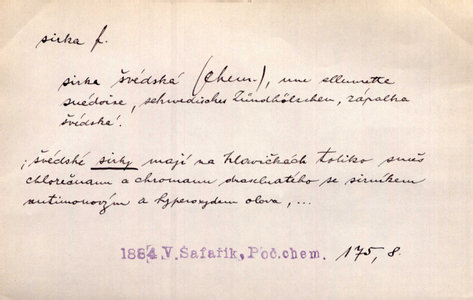 sirka f.
sirka švédská (chem.), une allumette
suédoise, schwedisches Zündhölzchen, zápalka
švédská.
; švédské sirky mají na hlavičkách toliko směs
chlorečnanu a chromanu draselnatého se sirníkem
antimonovým a hyperoxydem olova, ...
1884 V. Šafařík, Poč. chem. 175, 8.